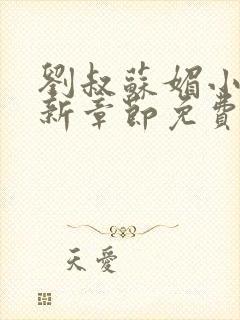 劉叔蘇媚小
新章節免費
天愛